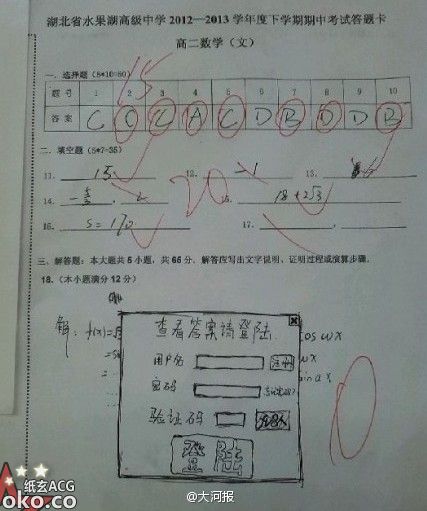 湖北省水果湖高级中学 2012—2013 学年度下学期期中考试答题卡
高二数学（文）
一、选择题（5*10=50） 15
题号 1 2 3 4 5 6 7 8 9 10
答案 C C A C D B D D B
二、填空题（5*7=35）
11. 15 12. -1 13. 6
14. 15. 18+2√3
20
16. S=170 17.
三、解答题：本大题共 5 小题，共 65 分。解答应写出文字说明、证明过程或演算步骤。
18.（本小题满分 12 分）
解：f(x)= cos wx
查看答案请登陆
用户名 注册
密码
验证码
登陆
0
纸玄ACG
oko.co
@大河报